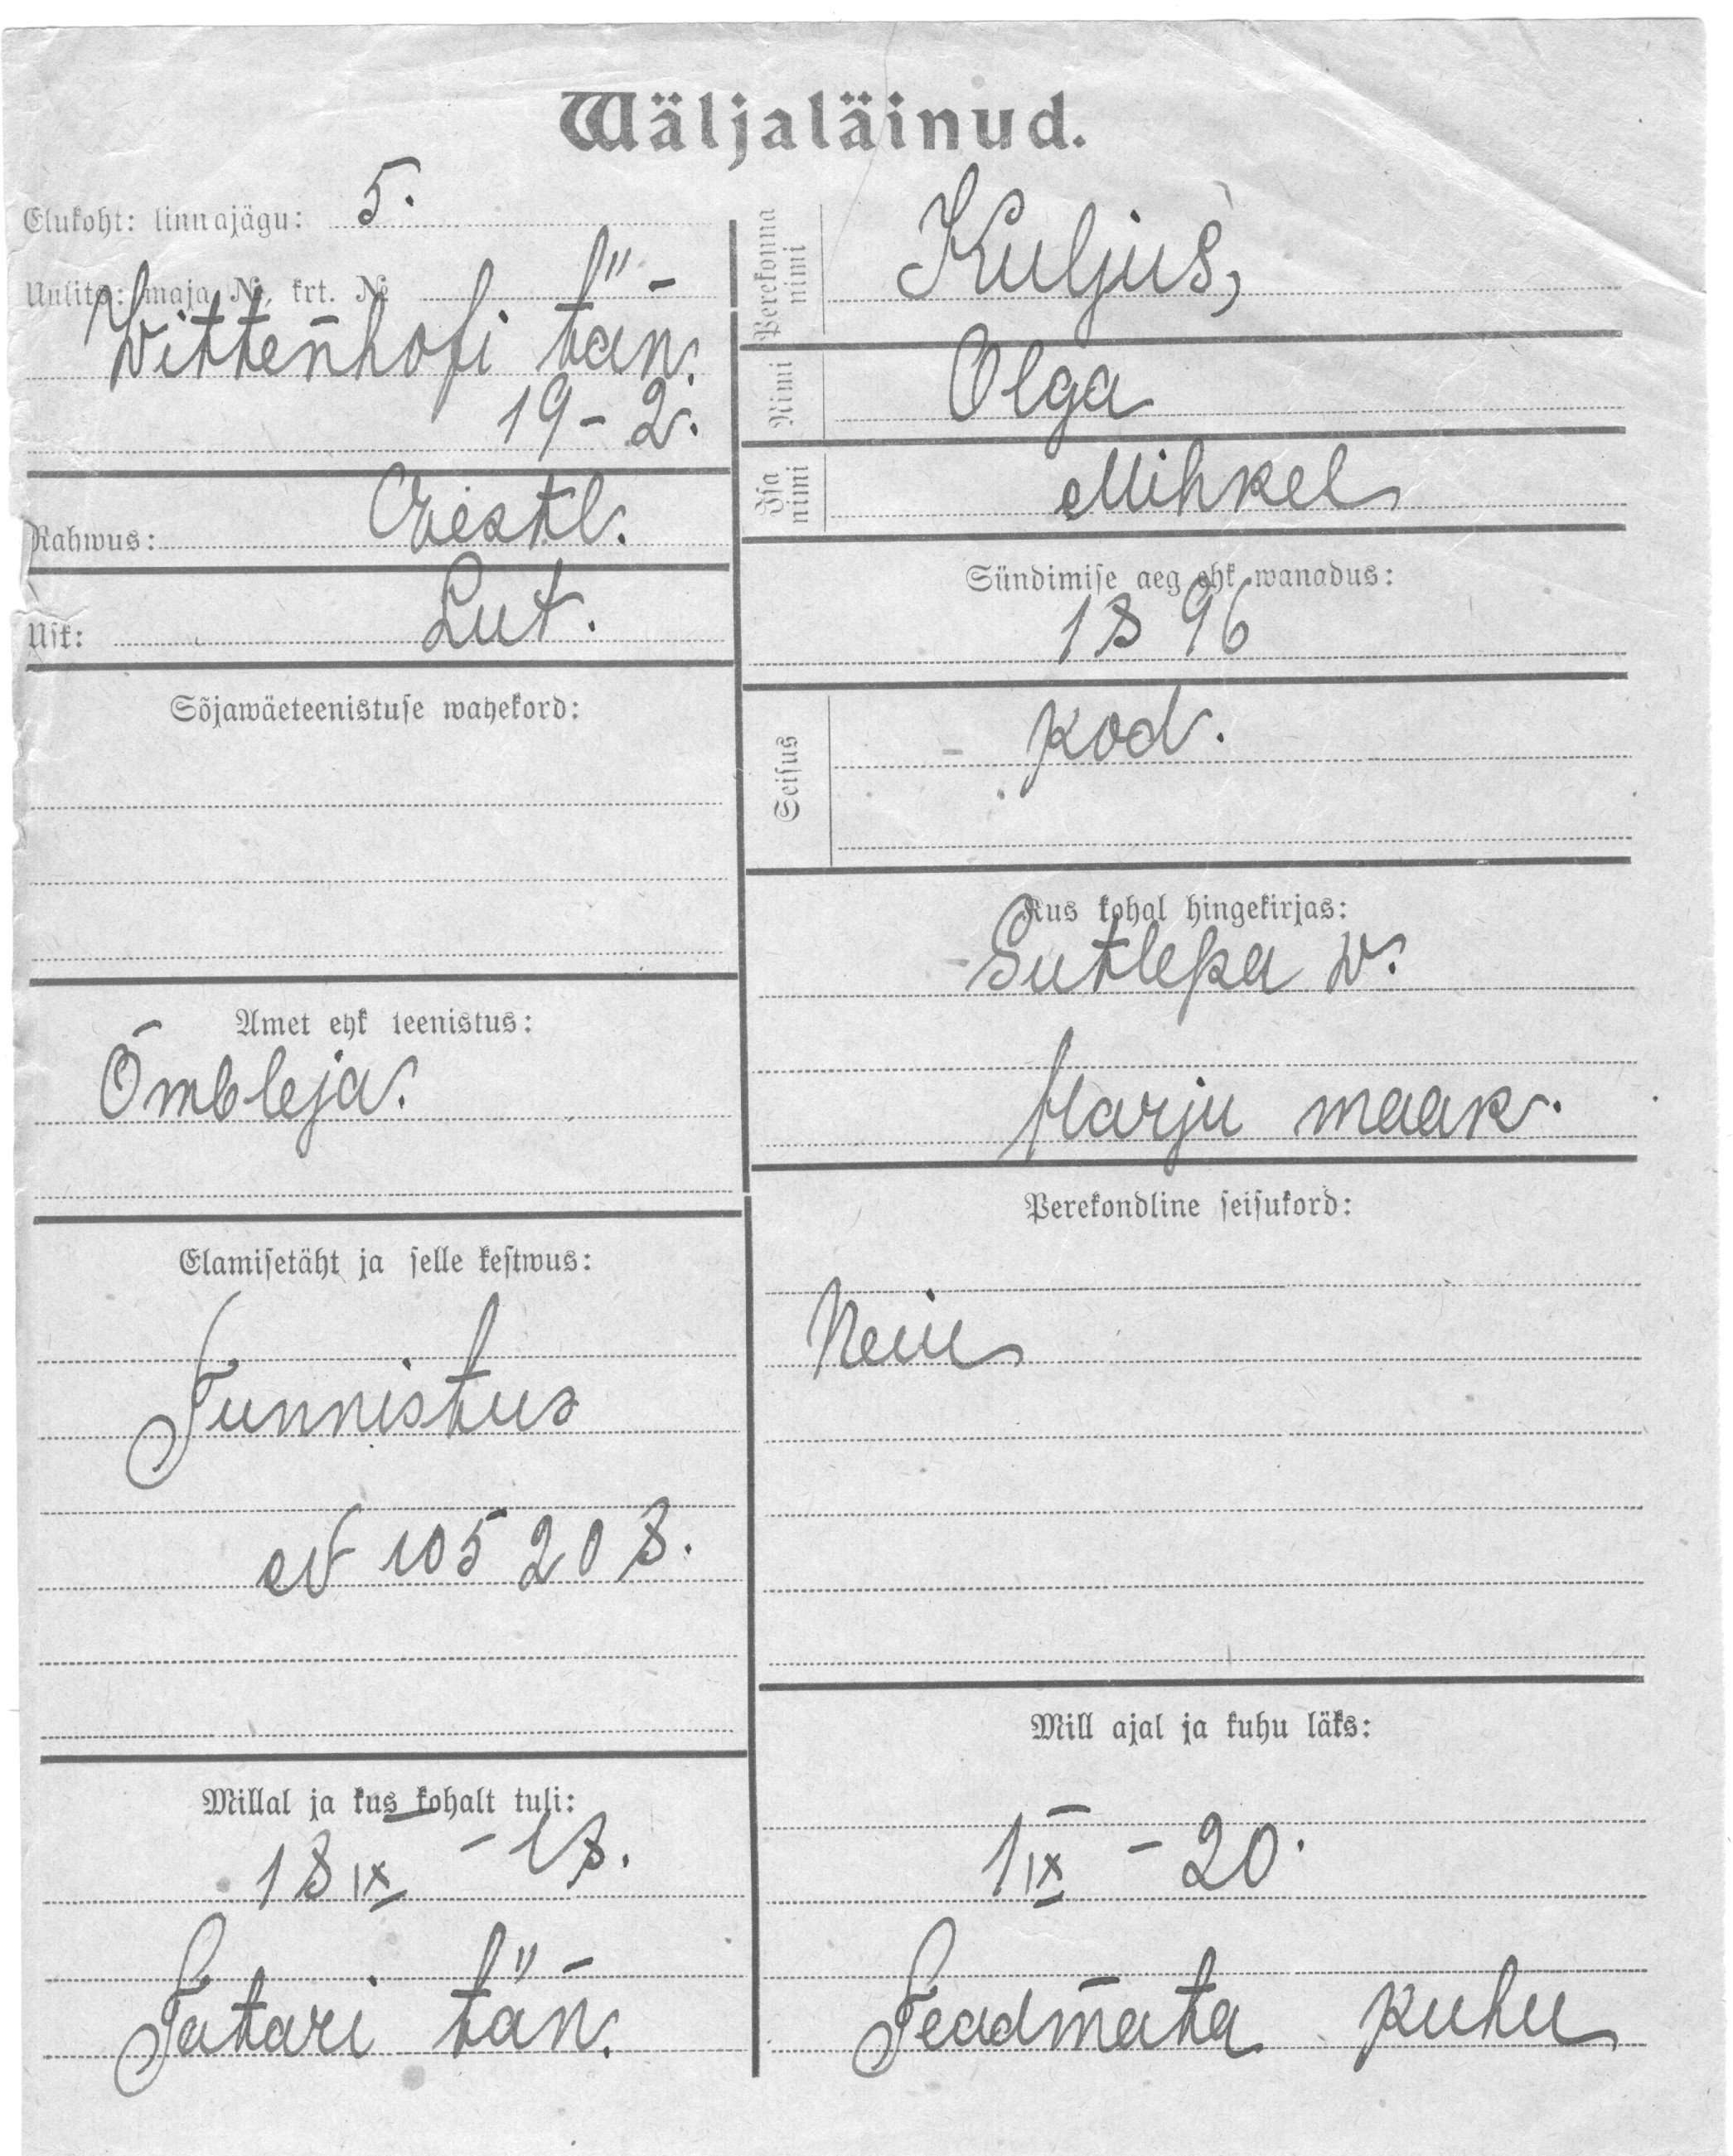 Wäljaläinud.
Elukoht: linnajagu: 5.
Uulits: maja №, krt. №
Wittenhofi tän.
19 - 2.
Rahwus: Eestl.
Usk: Lut.
Sõjawäeteenistuse wahekord:
Amet ehk teenistus:
Õmbleja.
Elamisetäht ja selle kestwus:
Tunnistus
№ 105208.
Millal ja kus kohalt tuli:
18 IX - 18.
Tatari tän.
Perekonna nimi Kuljus,
Nimi Olga
Isa nimi Mihkel
Sündimise aeg ehk wanadus:
1896
Seisus kod.
Kus kohal hingekirjas:
Sutlepa w.
Harju maak.
Perekondline seisukord:
Neiu
Mill ajal ja kuhu läks:
1 IX - 20.
Teadmata kuhu